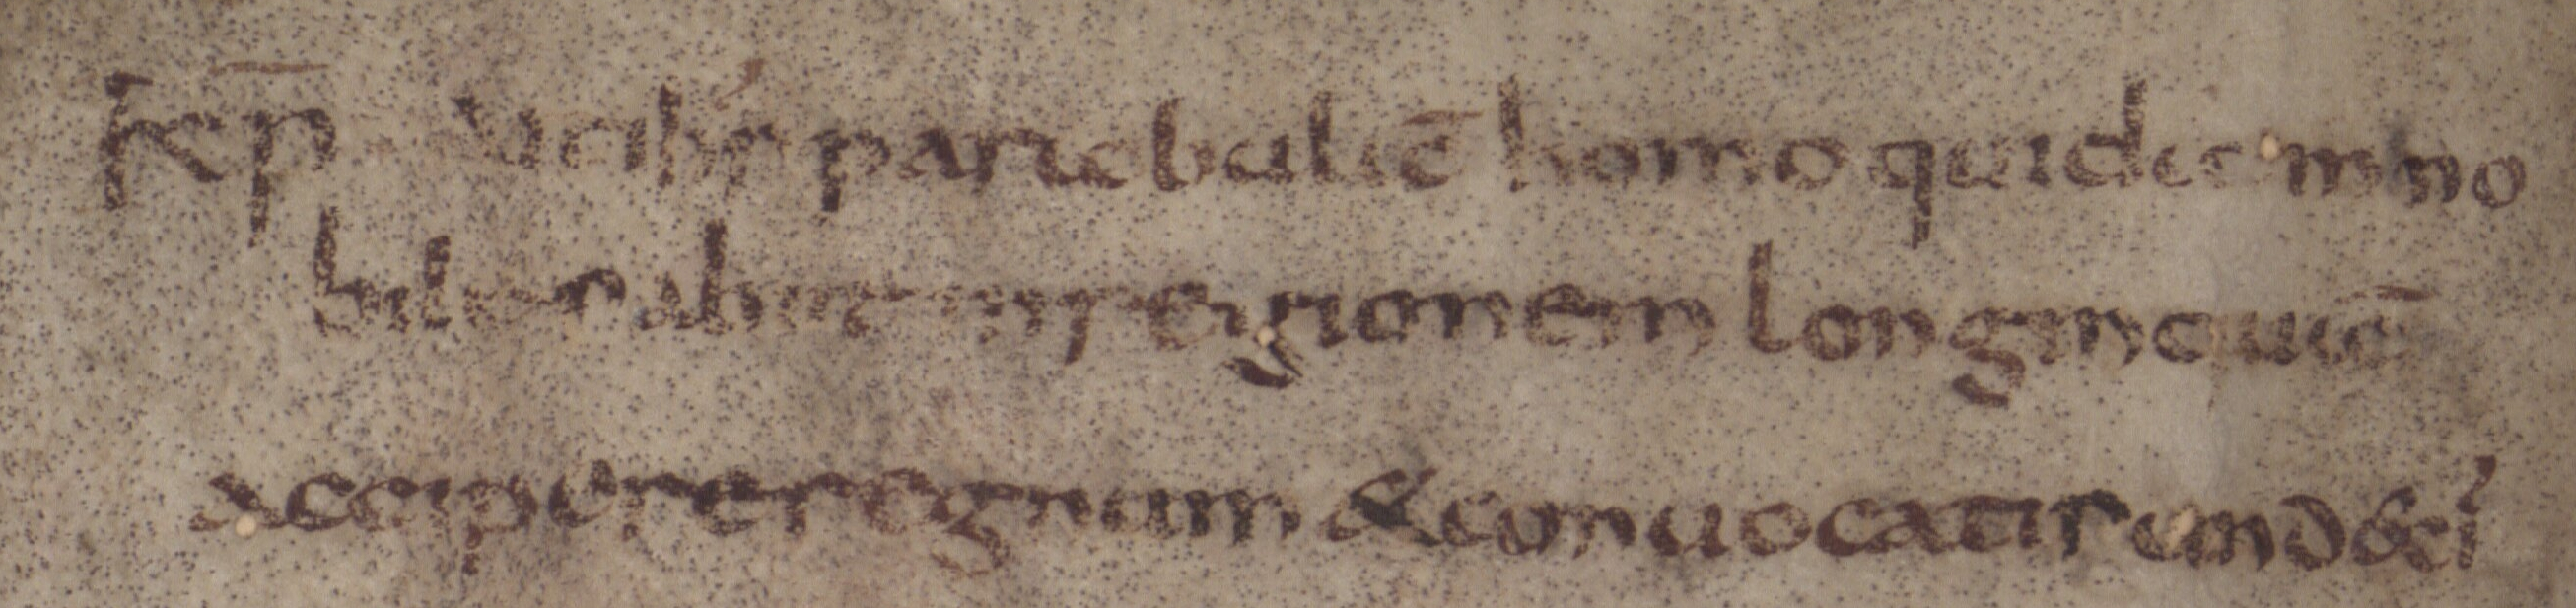 xp̄ ihs̄ parabolā homo quidam no
bilis abiit in regionem longincuā
accipere regnum & conuocatis